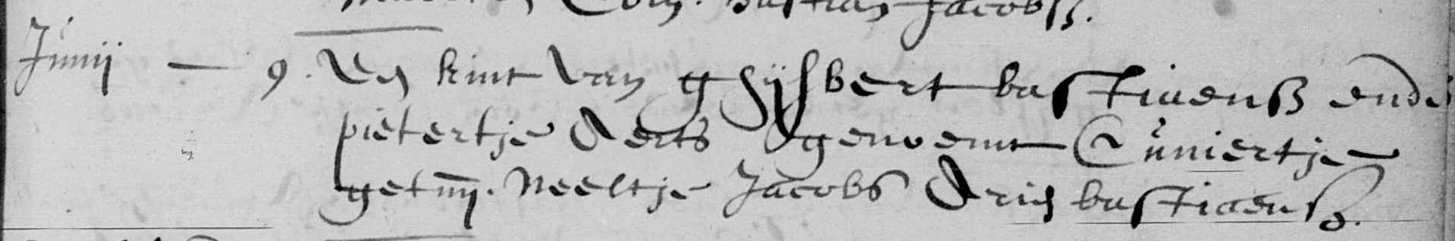 Corn. Bastiaen Jacobss.
Junij — 9. Een kint van Ghijsbert bastiaenss ende
pietertje Aerts genoemt Cùniertje
get. Neeltje Jacobs Arien bastiaenss.